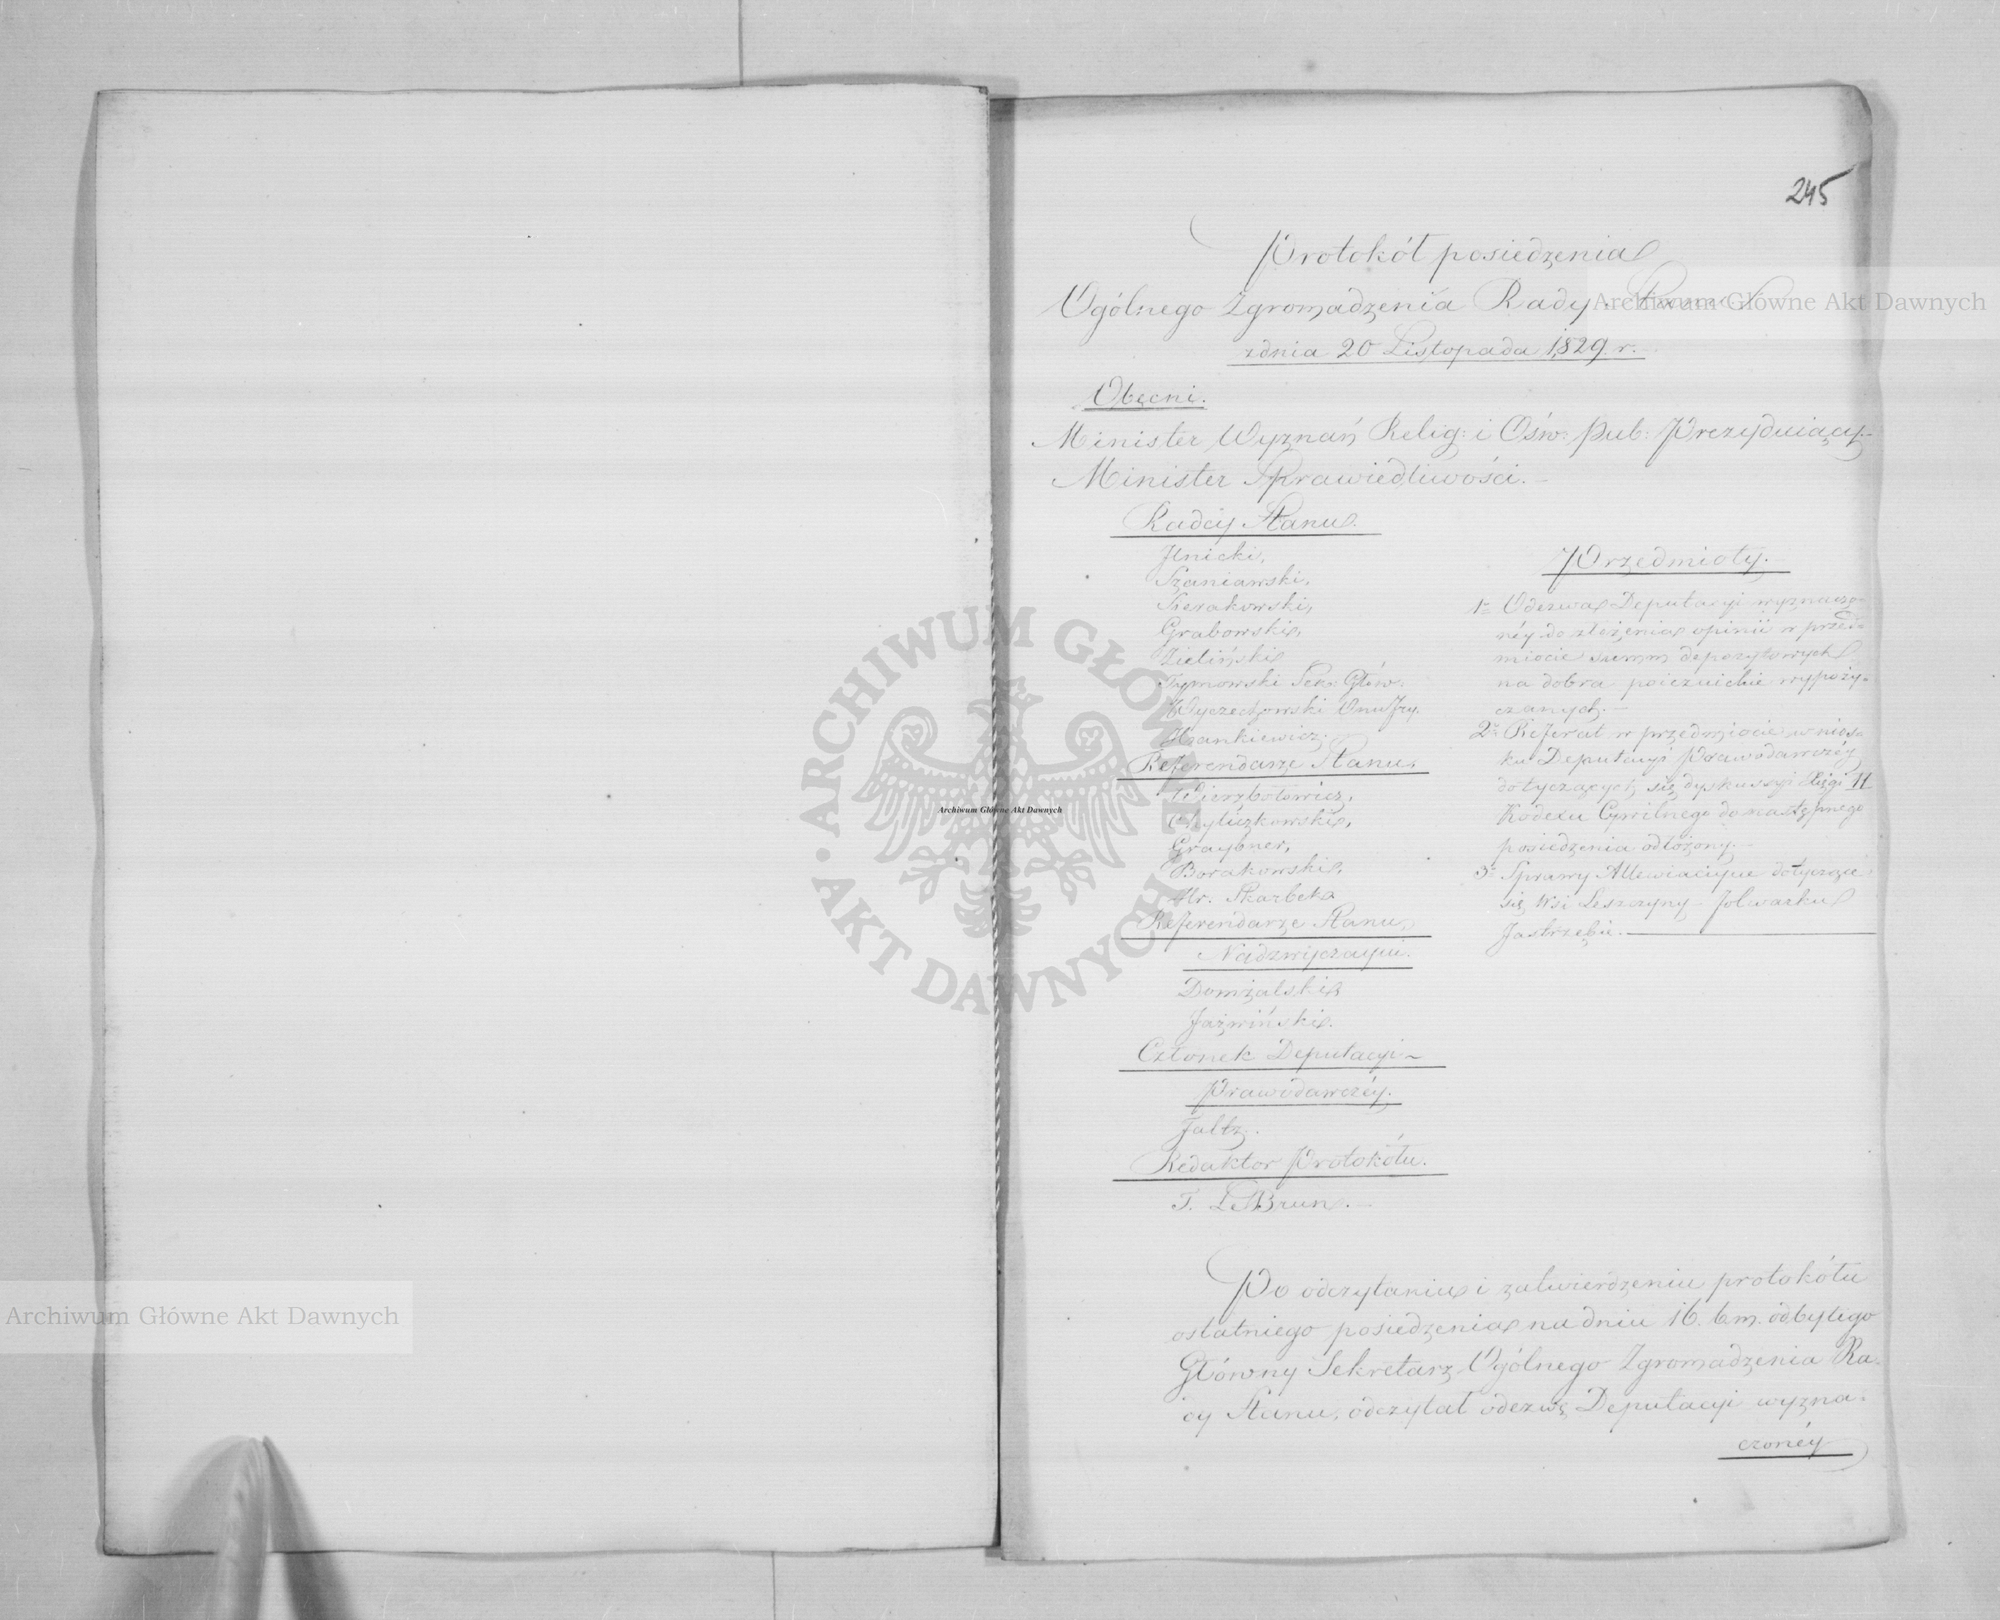 245
Protokół posiedzenia
Ogólnego Zgromadzenia Rady Stanu
z dnia 20 Listopada 1829 r.
Obecni.
Minister Wyznań Relig: i Ośw: Pub: Prezyduiący.
Minister Sprawiedliwości.
Radcy Stanu.
Szaniawski,
Sierakowski,
Grabowski,
Zieliński
Tymowski Sekr: Głów:
Wyczechowski Onufry.
Hankiewicz.
Referendarze Stanu,
Wierzbołowicz,
Chyliczkowski,
Graybner,
Borakowski,
Hr. Skarbek
Referendarze Stanu,
Nadzwyczayni.
Domżalski
Jaźwiński.
Członek Deputacyi
Prawodawczéy.
Faltz.
Redaktor Protokółu.
F. LeBrun.
Przedmioty.
1. Odezwa Deputacyi wyznaczo-
néy do złożenia opinii w przed-
miocie summ depozytowych
na dobra poiezuickie wypoży-
czanych.
2. Referat w przedmiocie wnios-
ku Deputacyi Prawodawczéy
dotyczących się dyskussyi Xięgi II
Kodexu Cywilnego do następnego
posiedzenia odłożony.
3. Sprawy Allewiacyine dotyczące
się Wsi Leszczyny Folwarku
Jastrzębie.
Po odczytaniu i zatwierdzeniu protokółu
ostatniego posiedzenia na dniu 16. b.m. odbytego
Główny Sekretarz Ogólnego Zgromadzenia Ra-
dy Stanu, odczytał odezwę Deputacyi wyzna-
czonéy
Archiwum Główne Akt Dawnych
Archiwum Główne Akt Dawnych
Archiwum Główne Akt Dawnych
ARCHIWUM GŁÓWNE AKT DAWNYCH